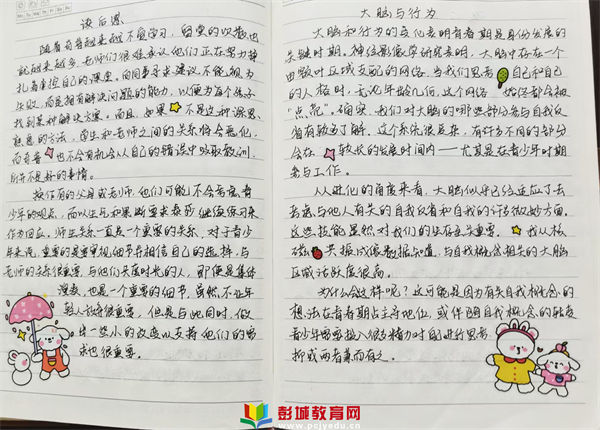 读后感
随着青春越来越不爱学习，留堂的次数也
就越来越多。老师们很难承认他们正在努力挣
扎着掌控自己的课堂。向同事寻求建议不能视为
失败，而是拥有解决问题的能力，以便为每个孩子
找到某种解决方案。而且，如果 不是这种深思
熟悉的方法，学生和老师之间的关系将会恶化，
而青春 也不会有机会从自己的错误中吸取教训，
并不是好的事情。
按作有的父母或老师，他们可能不会考虑青
少年的观点，而以生气和果断要求泰莎继续练习来
作为回应。师生关系一直是一个重要的关系，对于青少
年来说，重要的是要审视细节并相信自己的选择，与
老师的关系很重要，与他们共度时光的人，即便是集体
演奏，也是一个重要的细节，虽然不让年
轻人放弃很重要，但是与她同时，做
出一些小的改进以支持他们的要
求也很重要。
大脑与行为
大脑和行为的变化表明青春期是身份发展的
关键时期。神经影像学研究表明，大脑中存在一个
由数叶区域支配的网络，当我们思考 自己和自己
的人格时，无论年龄几何，这个网络 始终都会被
“点亮”。确实，我们对大脑的哪些部分参与自我反
省有较为了解。这个系统很复杂，有许多不同的部分
会在 较长的发展时间内——尤其是在青少年时期
参与工作。
从进化的角度来看，大脑似乎已经适应了去
考虑与他人有关的自我反省和自我的许多微妙方面。
这些技能显然对我们的生存至关重要。 我从核
磁 共振成像数据知道，与自我概念相关的大脑
区域活跃度很高。
为什么会这样呢？这可能是因为有关自我概念的
想法在青春期占主导地位，或伴随自我概念的转变
青少年需要投入很多精力对自己进行思考
抑或两者兼而有之。
彭城教育网
www.pcjyedu.cn